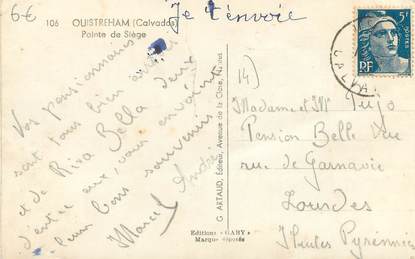 6€
106 OUISTREHAM (Calvados)
Pointe de Siège
Je t'envoie
5F
POSTES
RF
14)
Vos pensionnaires
sont tous bien arrivés
et de Riva Bella deux
d'entre eux, vous envoient
leurs bons souvenirs
Marcel André
G. ARTAUD, Éditeur, Avenue de la Close, Nantes
Editions "GABY"
Marque déposée
Madame et Mr Pujo
Pension Belle Vue
rue de Garnavie
Lourdes
Htes Pyrénées